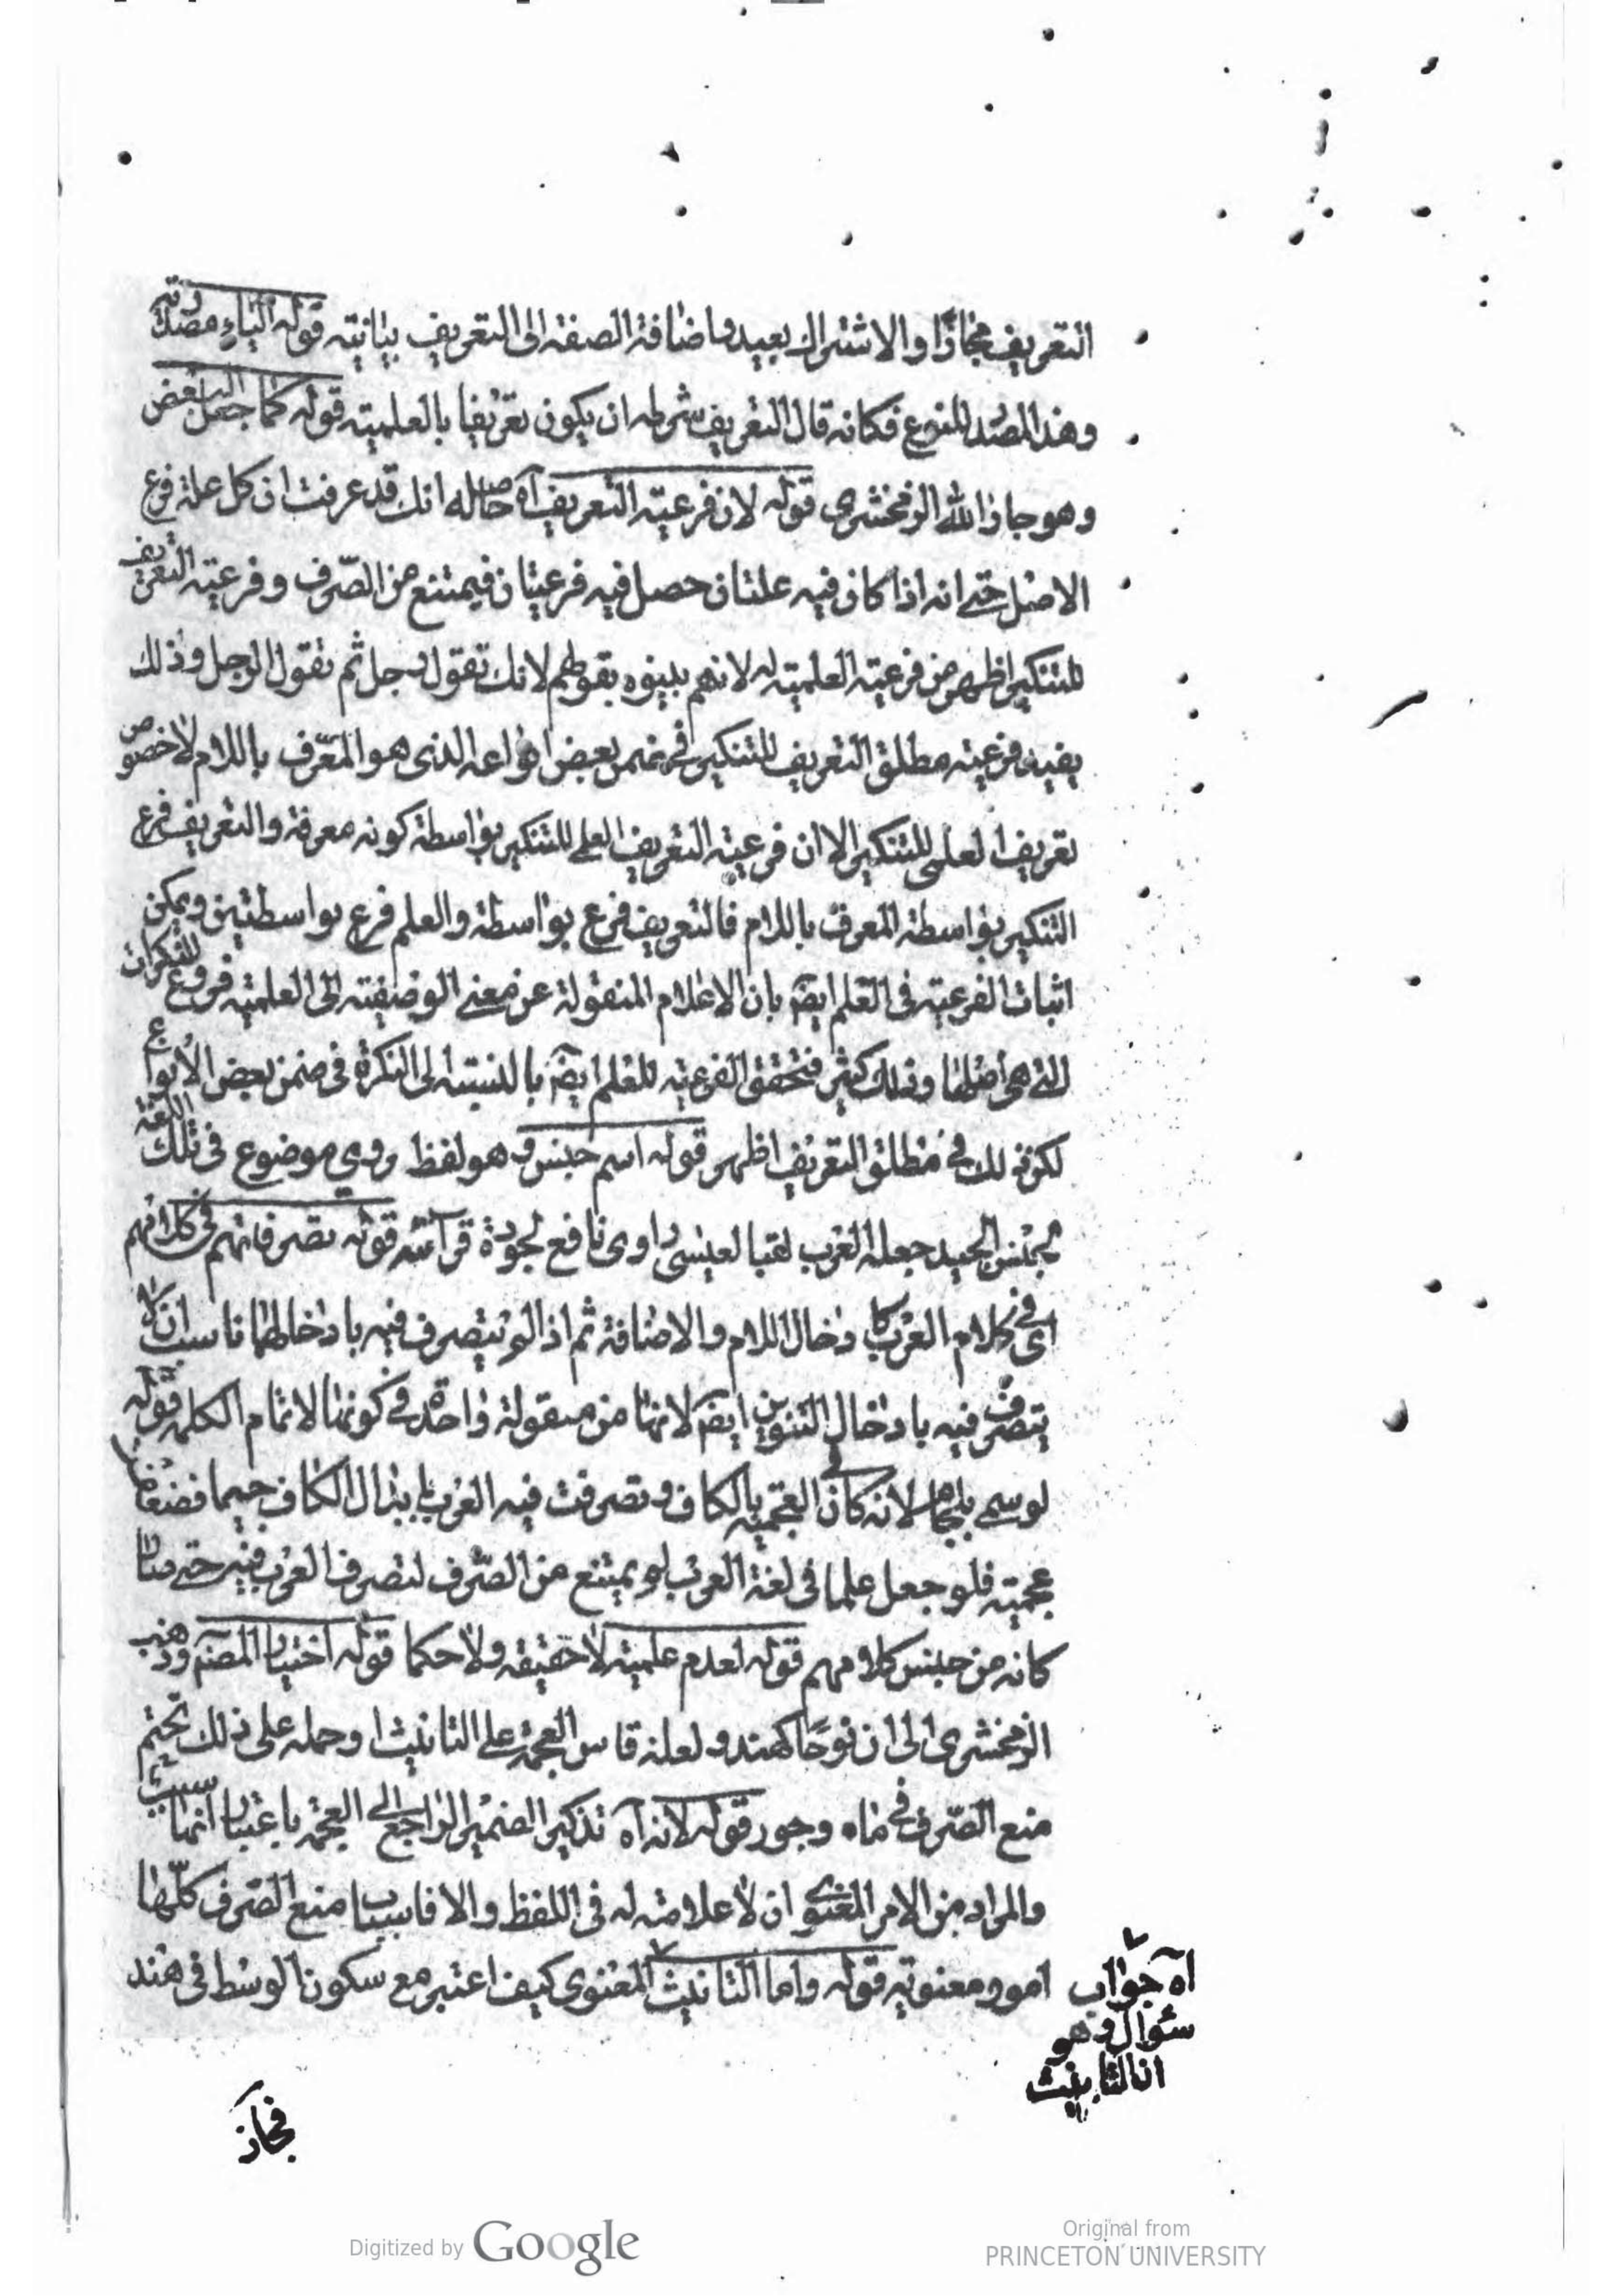 التعريف مجازا والاشتراك بعيد واضافة الصفة الى التعريف بيانية قوله الياء مصدرية
وهذا المصدر للنوع فكانه قال التعريف شرطه ان يكون تعريفا بالعلمية قوله كما جعل البعض
وهو جار الله الزمخشري قوله لان فرعية التعريف آه حاصله انك قد عرفت ان كل علة فرع
الاصل حتى انه اذا كان فيه علتان حصل فيه فرعيتان فيمتنع من الصرف وفرعية التعريف
للتنكير اظهر من فرعية العلمية له لانهم بينوه بقولهم لانك تقول رجل ثم تقول الرجل وذلك
يفيد فرعية مطلق التعريف للتنكير في ضمن بعض انواعه الذى هو المعرف باللام لا خصوص
تعريف العلمى للتنكير الا ان فرعية التعريف العلمى للتنكير بواسطة كونه معرفة والتعريف فرع
التنكير بواسطة المعرف باللام فالتعريف فرع بواسطة والعلم فرع بواسطتين ويمكن
اثبات الفرعية فى العلم ايضا بان الاعلام المنقولة عن معنى الوصفية الى العلمية فروع للنكرات
التى هى اصلها وذلك كثير فتحقق الفرعية للعلم ايضا بالنسبة الى النكرة فى ضمن بعض الانواع
لكن ذلك في مطلق التعريف اظهر قوله اسم جنس وهو لفظ رومي موضوع فى تلك اللغة
لجنس الجيد جعله العرب لقبا لعيسى راوى نافع لجودة قرآئته قوله تصرفاتهم فى كلامهم
اى في كلام العرب كا دخال اللام والاضافة ثم اذا لم يتصرف فيه بادخالهما ناسب ان لا
يتصرف فيه بادخال التنوين ايضا لانها من مقولة واحدة في كونها لاتمام الكلمة قوله
لو سمى بلجام لانه كان في العجمية بالكاف وتصرفت فيه العرب بابدال الكاف جيما فضعفت
عجميته فلو جعل علما فى لغة العرب لم يمتنع من الصرف لتصرف العرب فيه حتى صار
كانه من جنس كلامهم قوله لعدم علميته لا حقيقة ولا حكما قوله اختيار المصنف وذهب
الزمخشرى الى ان نوحا كهند ولعله قاس العجمة على التانيث او حمله على ذلك تحتم
منع الصرف في ماه وجور قوله لانه آه تذكير الضمير الراجع الى العجمة باعتبار انها سبب
والمراد من الامر المعنوي ان لا علامة له فى اللفظ والا فاسباب منع الصرف كلها
امور معنوية قوله واما التانيث المعنوى كيف اعتبر مع سكون الوسط فى هند
آه جواب
سئوال وهو
ان التانيث
فجاز
Digitized by Google
Original from
PRINCETON UNIVERSITY